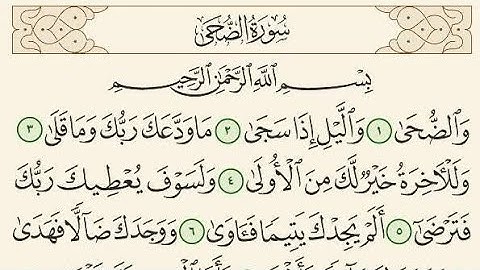 سُورَةُ الضُّحَىٰ
بِسْمِ اللَّهِ الرَّحْمَٰنِ الرَّحِيمِ
وَٱلضُّحَىٰ ١ وَٱلَّيْلِ إِذَا سَجَىٰ ٢ مَا وَدَّعَكَ رَبُّكَ وَمَا قَلَىٰ ٣
وَلَلْأَخِرَةُ خَيْرٌ لَّكَ مِنَ ٱلْأُولَىٰ ٤ وَلَسَوْفَ يُعْطِيكَ رَبُّكَ
فَتَرْضَىٰٓ ٥ أَلَمْ يَجِدْكَ يَتِيمًا فَـَٔاوَىٰ ٦ وَوَجَدَكَ ضَآلًّا فَهَدَىٰ